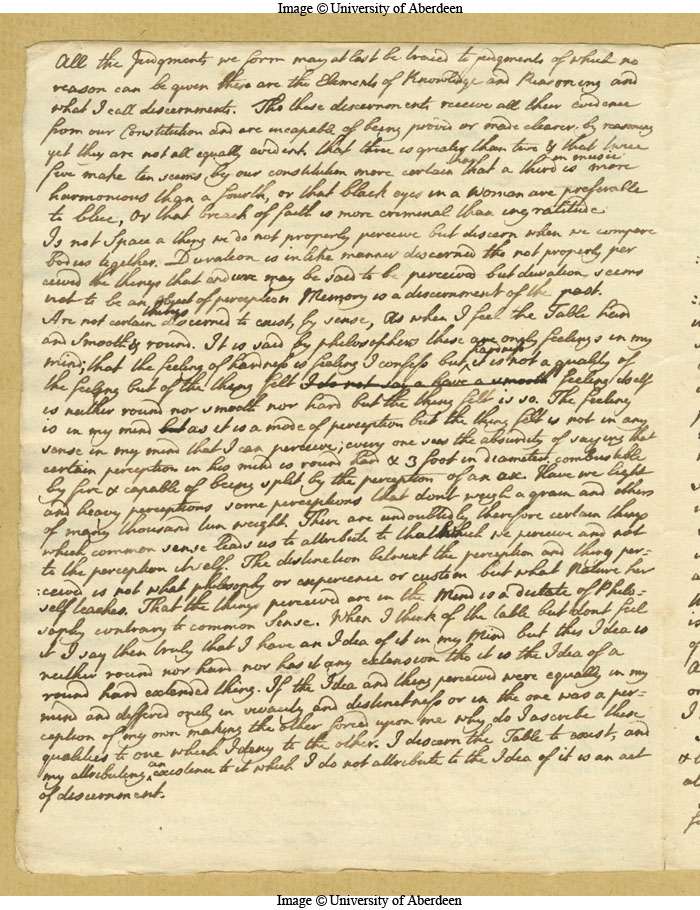 Image © University of Aberdeen
All the Judgments we form may at last be traced to judgments of which no
reason can be given these are the Elements of Knowledge and Reasoning and
what I call discernments. Tho these discernments receive all their evidence
from our Constitution and are incapable of being proved or made clearer by reasoning
yet they are not all equally evident. that three is greater than two & that twice
five make ten seems by our constitution more certain than that a third in musick is more
harmonious than a fourth, or that black eyes in a Woman are preferable
to blue, Or that breach of faith is more criminal than ingratitude
Is not Space a thing we do not properly perceive but discern when we compare
bodies together. Duration is in like manner discerned tho not properly per
ceived the things that endure may be said to be perceived but duration seems
not to be an object of perception Memory is a discernment of the past.
Are not certain things discerned to exist, by sense, As when I feel the Table hard
and smooth & round. It is said by philosophers these are only feelings in my
mind; that the feeling of hardness is feeling I confess but hardness it is not a quality of
the feeling but of the thing felt I do not say a have a smooth feeling itself
is neither round nor smooth nor hard but the thing felt is so. The feeling
is in my mind but as it is a mode of perception but the thing felt is not in any
sense in my mind that I can perceive; every one sees the absurdity of saying that
certain perception in his mind is round hard & 3 foot in diameter combustible
by fire & capable of being split by the perception of an ax. Have we light
and heavy perceptions some perceptions that dont weigh a grain and others
of many thousand tun weight. There are undoubtedly therefore certain things
which common sense leads us to attribute to that which we perceive and not
to the perception itself. The distinction betwixt the perception and thing per=
:ceived is not what philosophy or experience or custom but what Nature her
self teaches. That the things perceived are in the Mind is a dictate of Philo=
sophy contrary to common Sense. When I think of the table but dont feel
it I say then truly that I have an Idea of it in my Mind but this Idea is
neither round nor hard nor has it any extension tho it is the Idea of a
round hard extended thing. If the Idea and thing perceived were equally in my
mind and differed only in vivacity and distinctness or in the one was a per=
ception of my own making the other forced upon me why do I ascribe these
qualities to one which I deny to the other. I discern the Table to exist, and
my attributing an existence to it which I do not attribute to the Idea of it is an act
of discernment.
Image © University of Aberdeen